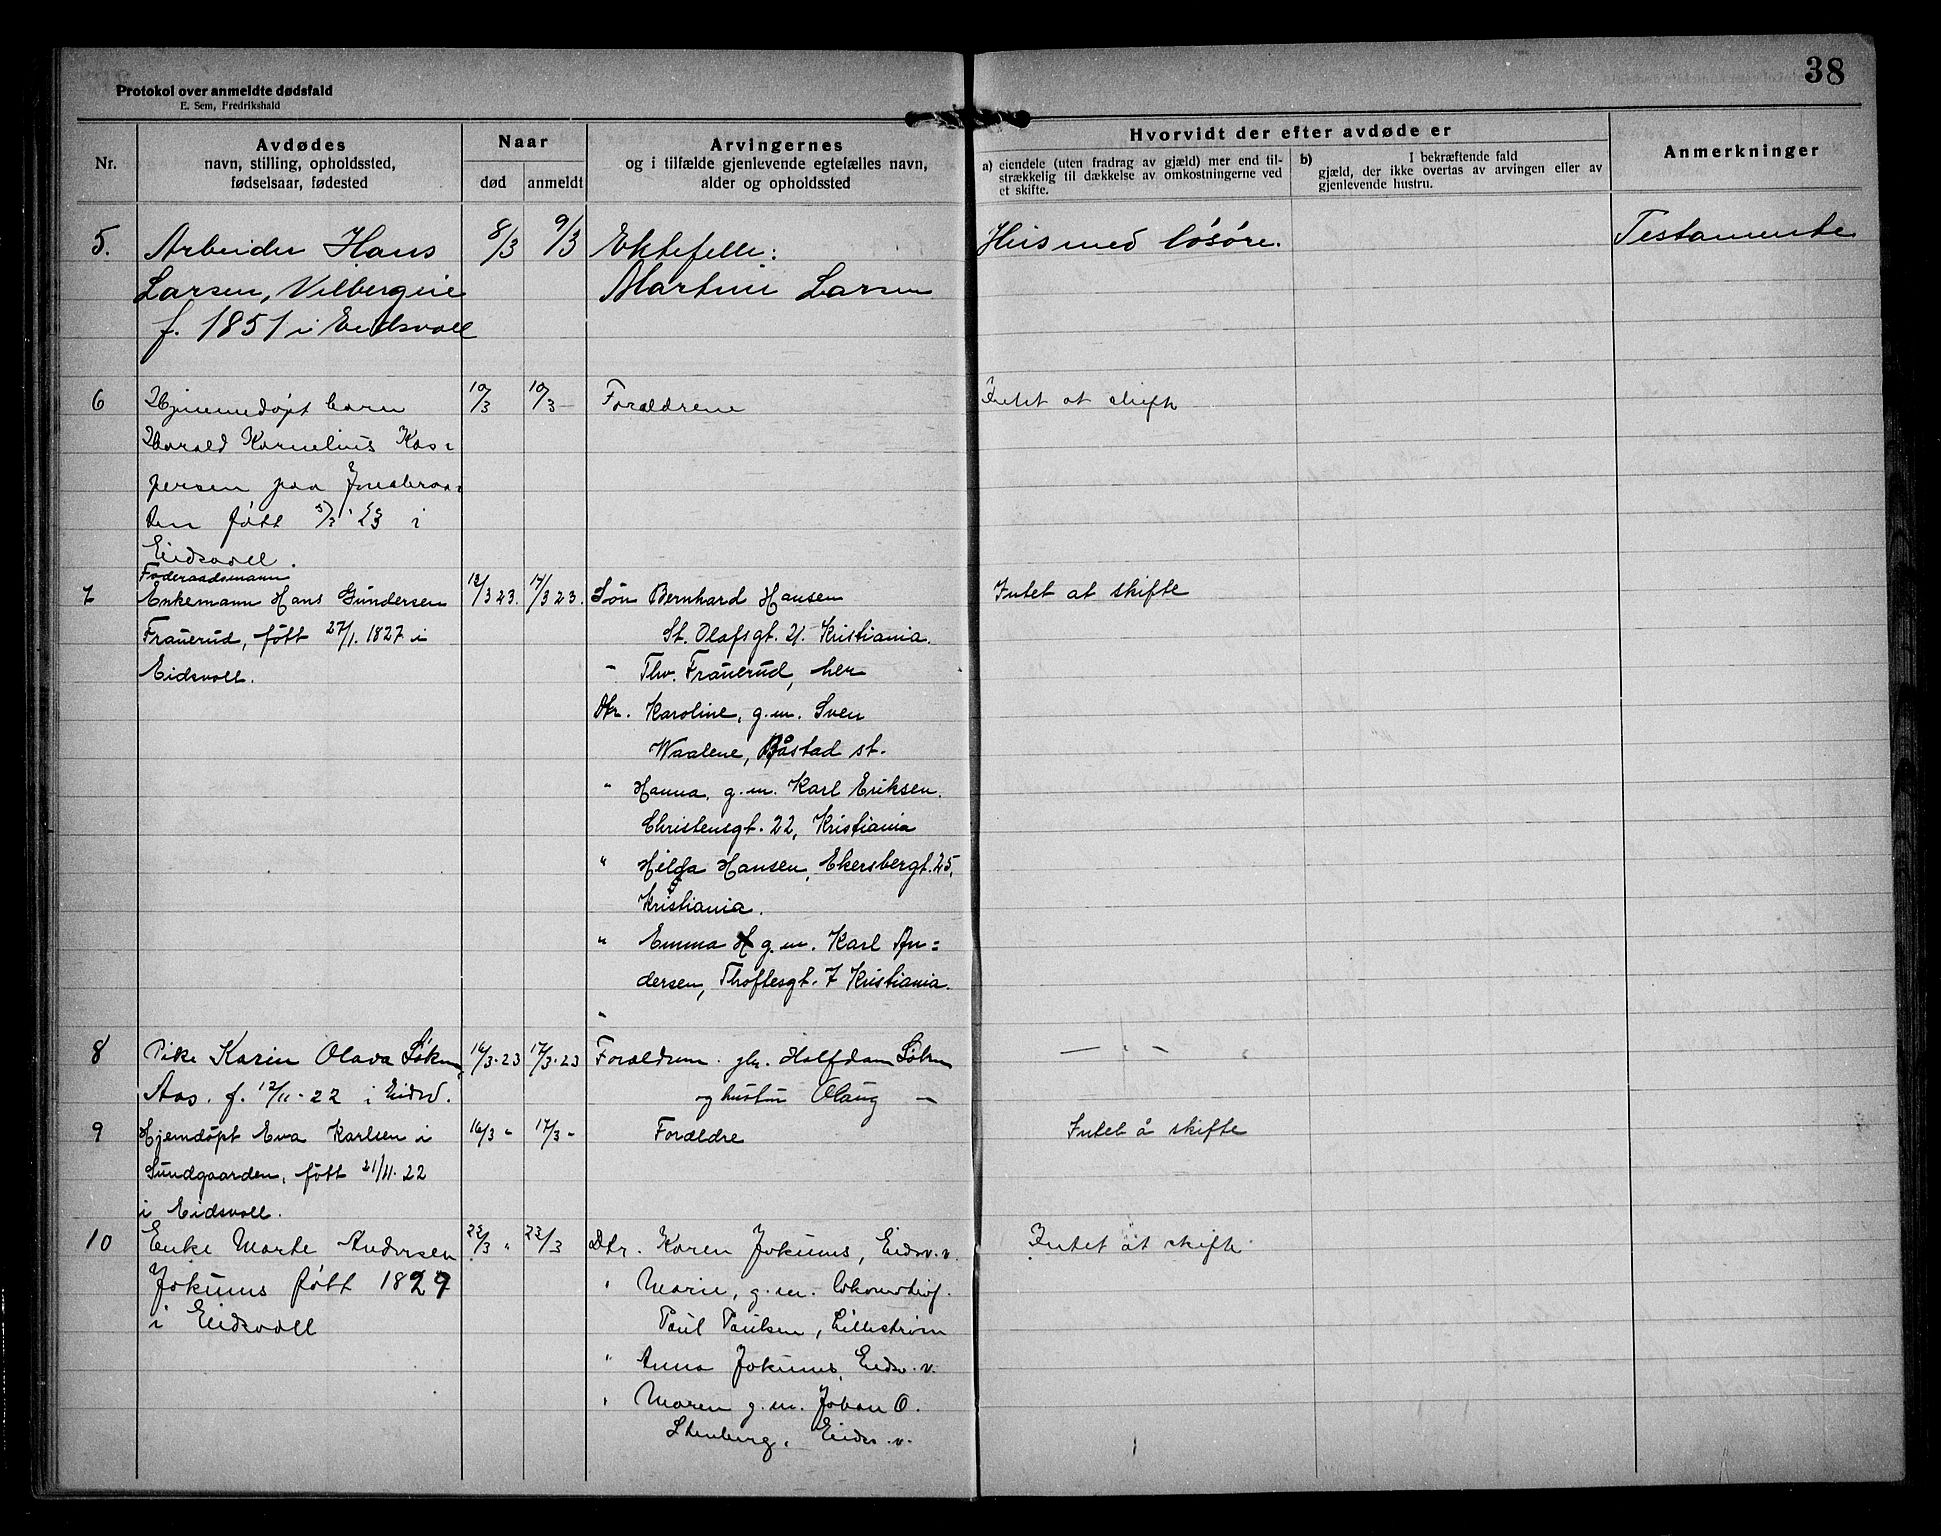 38
Protokol over anmeldte dødsfald
E. Sem, Fredrikshald
Nr.
Avdødes
navn, stilling, opholdssted,
fødselsaar, fødested
Naar
død
anmeldt
Arvingernes
og i tilfælde gjenlevende egtefælles navn,
alder og opholdssted
Hvorvidt der efter avdøde er
a) eiendele (uten fradrag av gjæld) mer end til-
strækkelig til dækkelse av omkostningerne ved
et skifte.
b) I bekræftende fald
gjæld, der ikke overtas av arvingen eller av
gjenlevende hustru.
Anmerkninger
5. Arbeider Hans 8/3 9/3 Ektefelle: Hus med løsøre. Testamente
Larsen, Vilbergeie Martini Larsen
f. 1851 i Eidsvoll
6 Hjemmedøpt barn 10/3 10/3 Forældrene Intet at skifte
Harald Kornelius Kas-
persen paa
født 5/3 23 i
Eidsvoll.
Føderaadsmann
7 Enkemann Hans Gundersen 12/3 23. 14/3 23. Søn Bernhard Hansen Intet at skifte
Frauerud, født 27/1. 1827 i St. Olafsgt. 21. Kristiania.
Eidsvoll. - Thv. Frauerud, her
Dtr. Karoline, g.m. Sven
Waalene, Båstad st.
" Hanna, g.m. Karl Eriksen.
Christensgt. 22, Kristiania
" Hilda Hansen, Ekersbergt. 25,
Kristiania.
" Emma g.m. Karl An=
dersen, Thoftesgt. 7 Kristiania.
"
8 Pike Karin Olava 16/3-23 17/3-23 Halfdan — " —
Aas. f. 12/11-22 i Eidsv. og hustru Olaug —
9 Hjemdøpt Eva Karlsen i 16/3 " 17/3 " Forældre Intet å skifte
Sundgaarden, født 21/11-22
i Eidsvoll.
10 Enke Marte Andersen 22/3 " 22/3 Dtr. Karen Jokums, Eidsv. v. Intet at skifte
Jokums født 1829 " Marie, g.m. lokomotivf.
i Eidsvoll Paul Paulsen, Lillestrøm
" Anna Jokums, Eidsv. v.
" Maren g.m. Johan O.
Stenberg, Eidsv. v.